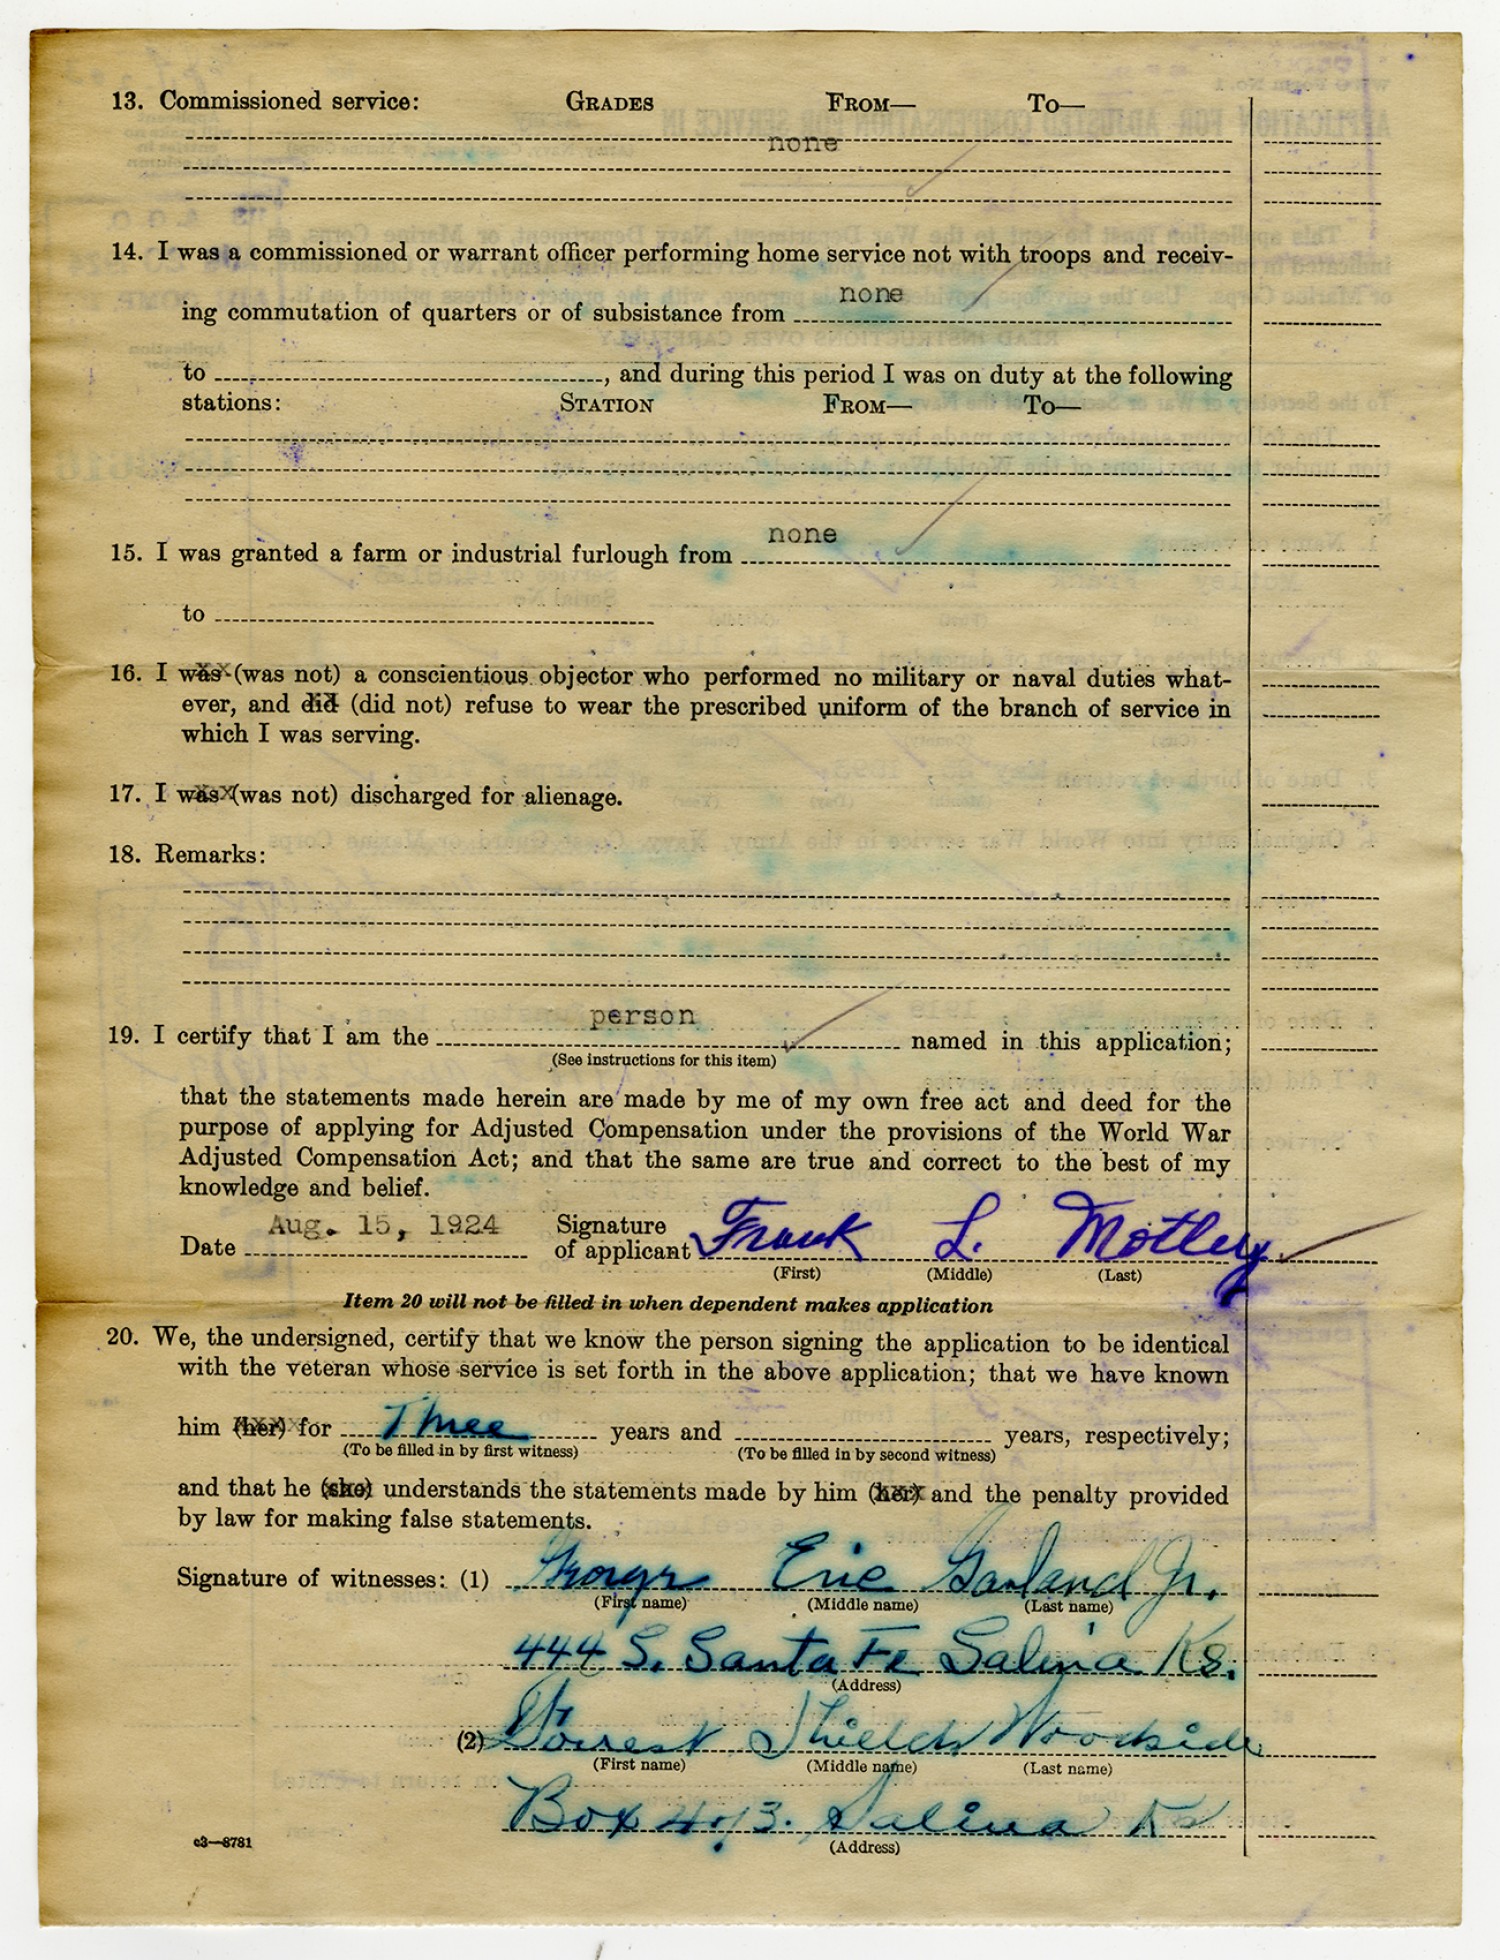 13. Commissioned service: GRADES FROM— TO—
none
14. I was a commissioned or warrant officer performing home service not with troops and receiv-
none
ing commutation of quarters or of subsistance from
to , and during this period I was on duty at the following
stations: STATION FROM— TO—
none
15. I was granted a farm or industrial furlough from
to
16. I was (was not) a conscientious objector who performed no military or naval duties what-
ever, and did (did not) refuse to wear the prescribed uniform of the branch of service in
which I was serving.
17. I was (was not) discharged for alienage.
18. Remarks:
person
19. I certify that I am the named in this application;
(See instructions for this item)
that the statements made herein are made by me of my own free act and deed for the
purpose of applying for Adjusted Compensation under the provisions of the World War
Adjusted Compensation Act; and that the same are true and correct to the best of my
knowledge and belief.
Date Aug. 15, 1924 Signature of applicant Frank L. Motley
(First) (Middle) (Last)
Item 20 will not be filled in when dependent makes application
20. We, the undersigned, certify that we know the person signing the application to be identical
with the veteran whose service is set forth in the above application; that we have known
him (her) for Three years and years, respectively;
(To be filled in by first witness) (To be filled in by second witness)
and that he (she) understands the statements made by him (her) and the penalty provided
by law for making false statements.
Signature of witnesses: (1) George Eric Garland Jr.
(First name) (Middle name) (Last name)
444 S. Santa Fe Salina Ks.
(Address)
(2) Forrest Shields Woodside
(First name) (Middle name) (Last name)
Box 413. Salina Ks
(Address)
c3—8781